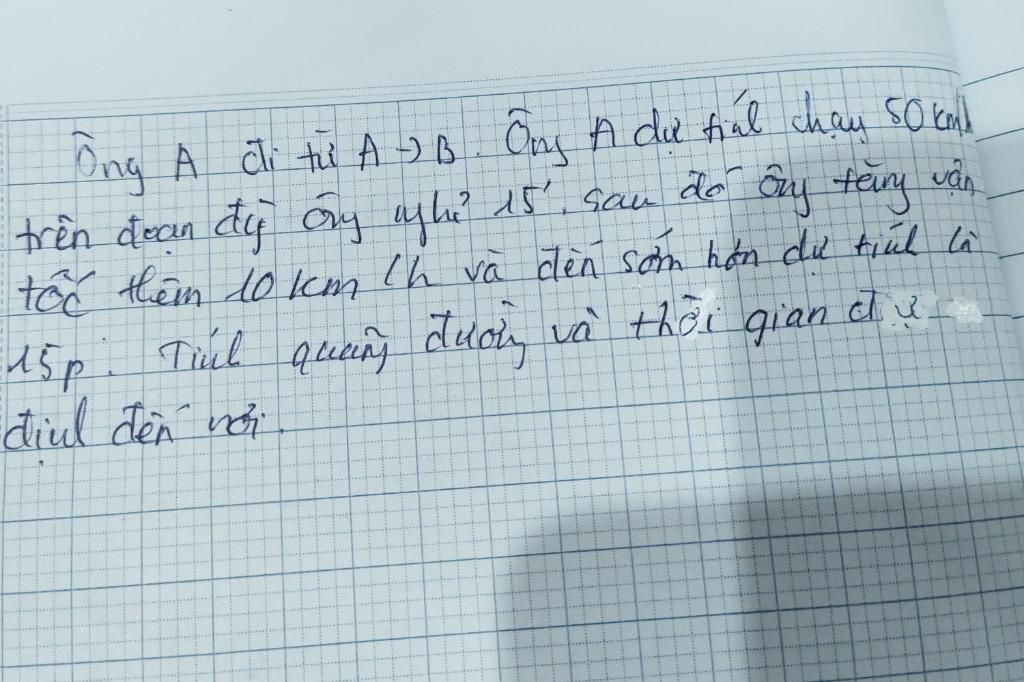 Ông A đi từ A → B. Ông A dự tính chạy 50 km/h
trên đoạn đg ông nghỉ 15'. Sau đó ông tăng vận
tốc thêm 10 km/h và đến sớm hơn dự tính là
15p. Tính quãng đường và thời gian dự
định đến nơi.